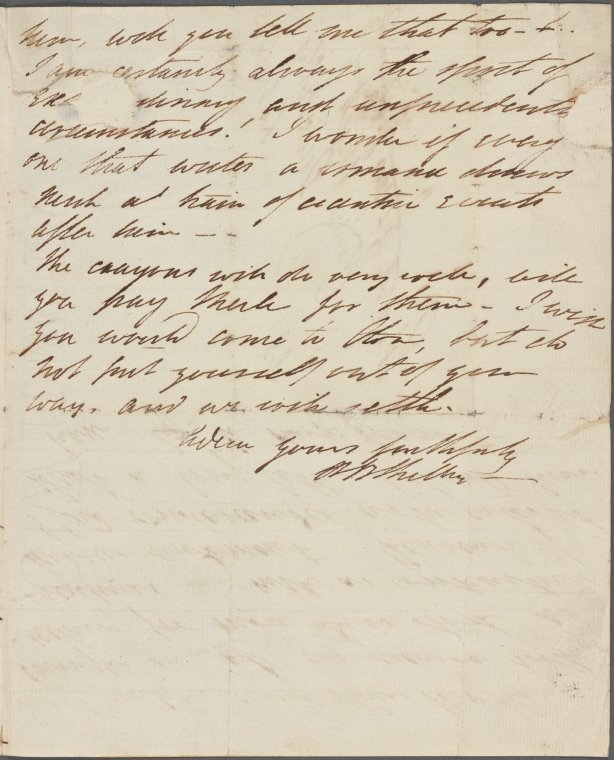 him, will you tell me that too — &..
I am certainly always the sport of
Ex dinary and unprecedented
circumstances! I wonder if every
one that writes a romance draws
such a train of eccentric Events
after him — -
The crayons will do very well, will
you pay for them — I wish
you would come to Eton, but do
not put yourself out of your
way, and we will settle.
Adieu Yours faithfully
PBShelley —